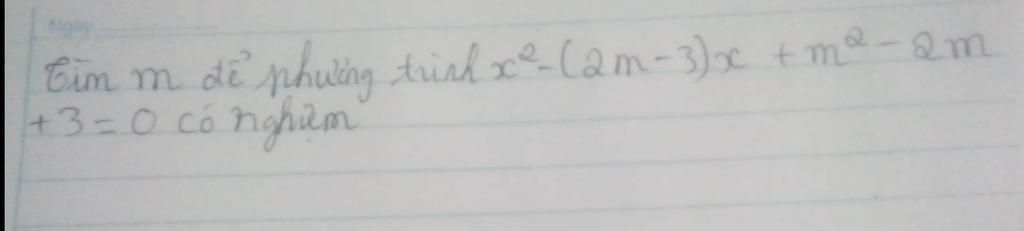 Ngày
Tìm m để phương trình x² - (2m - 3)x + m² - 2m
+ 3 = 0 có nghiệm